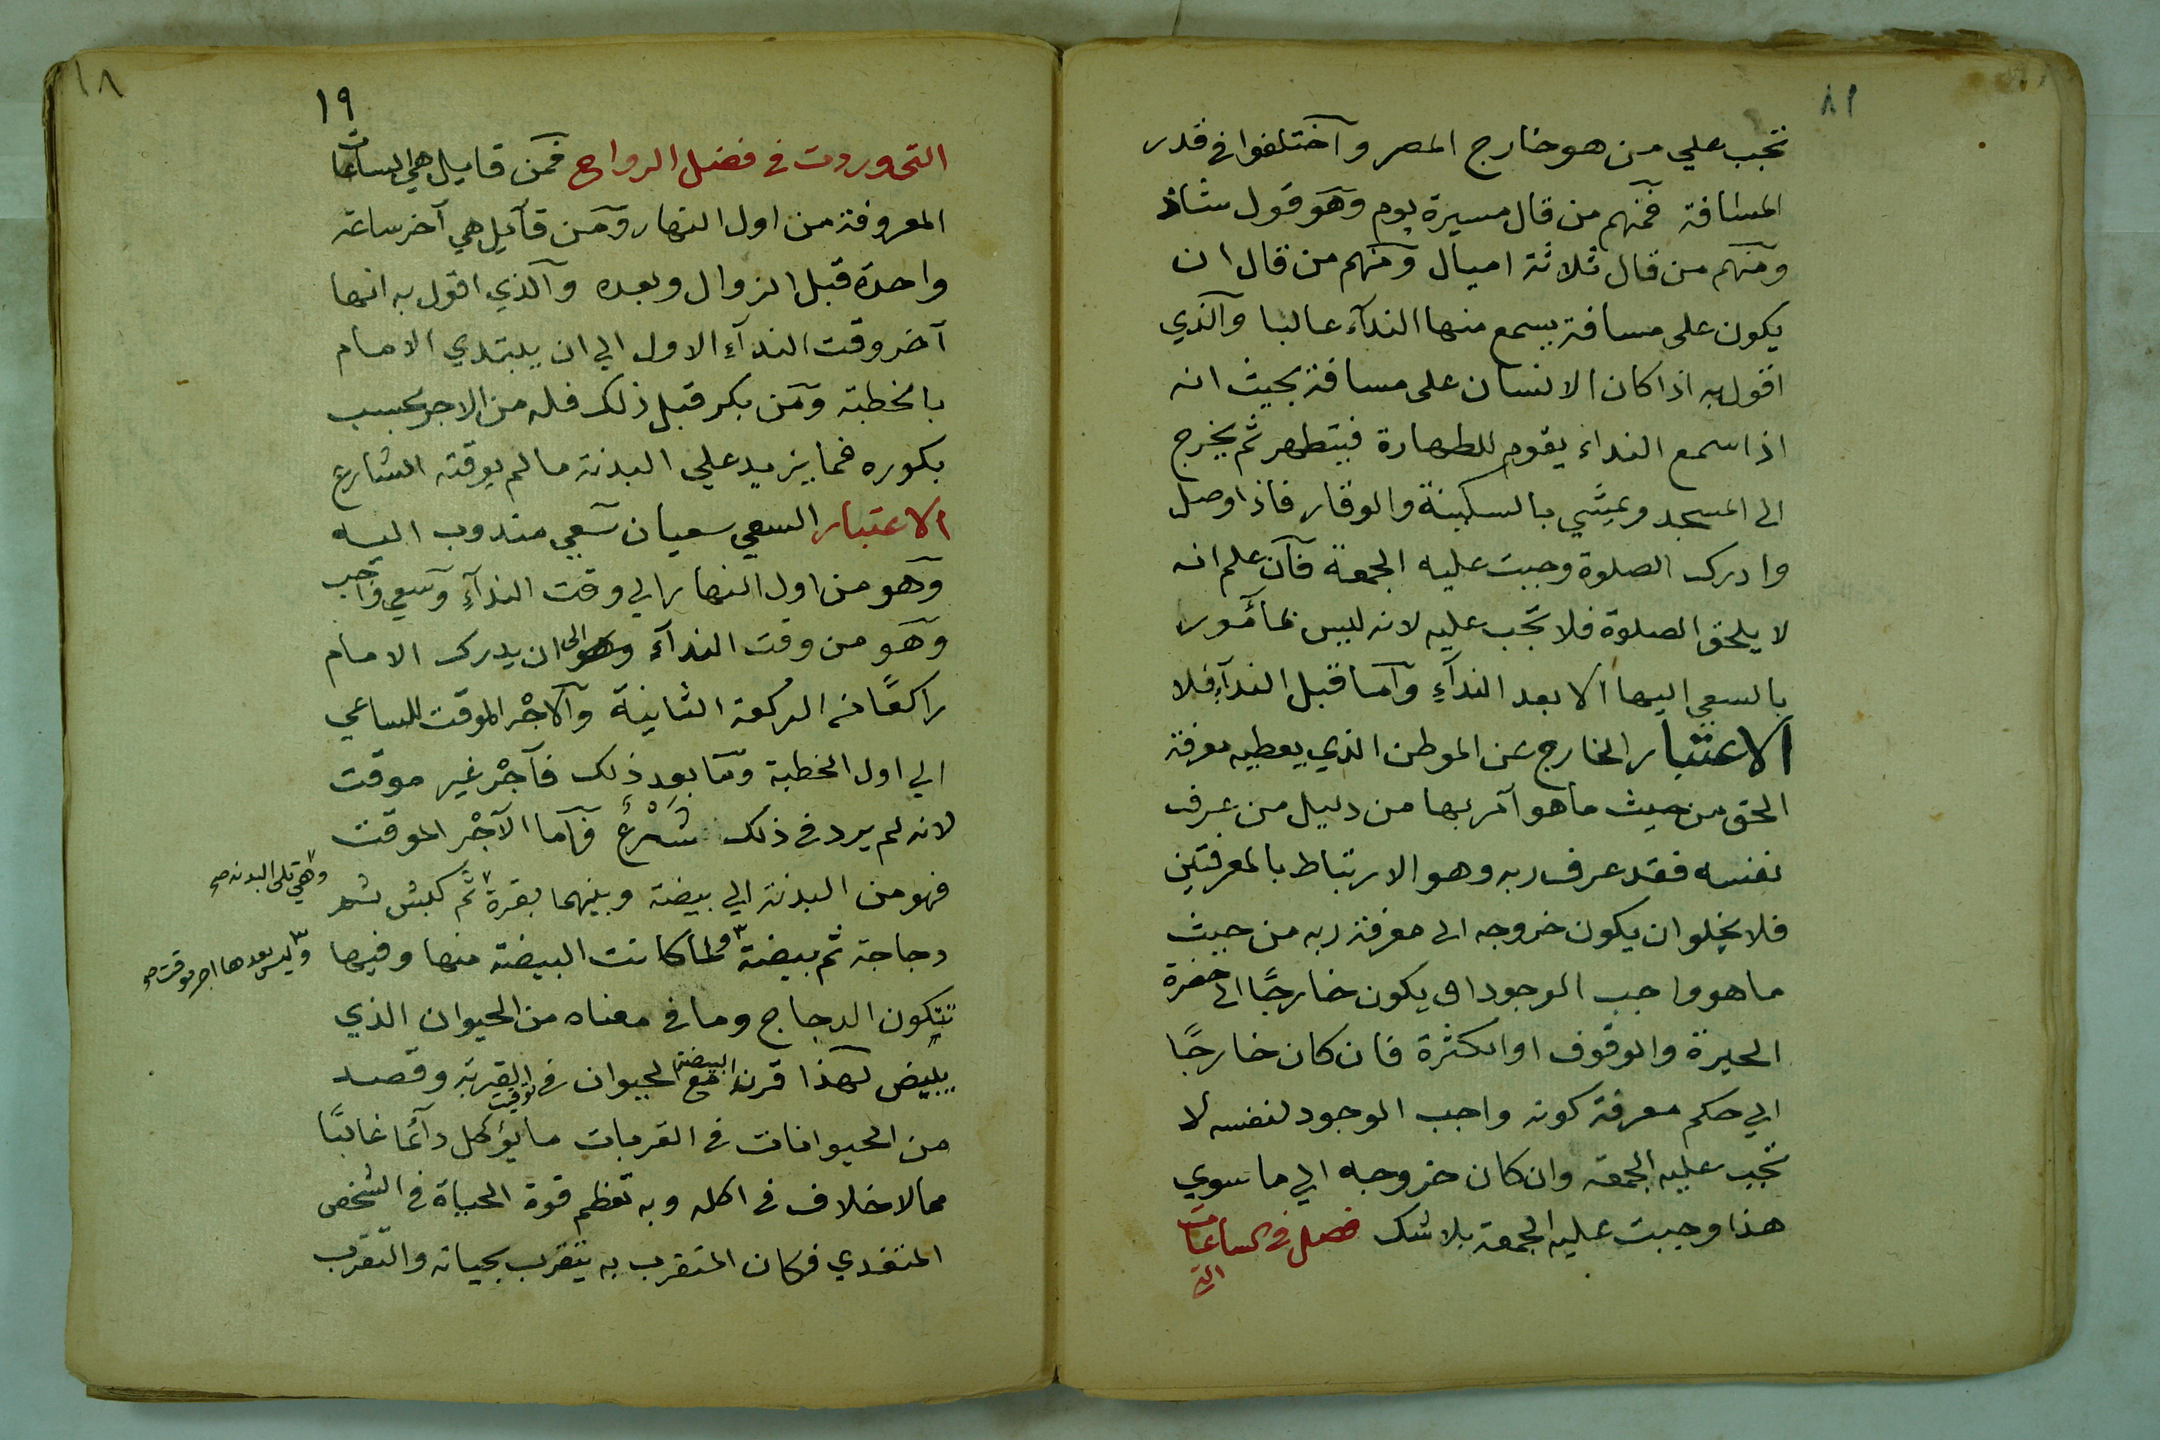 ١٨
تجب علي من هو خارج المصر وآختلفوا في قدر
المسافة فمنهم من قال مسيرة يوم وهو قول شاذ
ومنهم من قال ثلاثة اميال ومنهم من قال ان
يكون على مسافة يسمع منها الندآء غالبا وآلذي
اقول به اذا كان الانسان على مسافة بحيث انه
اذا سمع النداء يقوم للطهارة فيتطهر ثم يخرج
الى المسجد ويمشي بالسكينة والوقار فاذا وصل
وادرك الصلوة وجبت عليه الجمعة فآن علم انه
لا يلحق الصلوة فلا تجب عليه لانه ليس بمأمور
بالسعي اليها الا بعد الندآءِ وآما قبل الندآءِ فلا
الاعتبار الخارج عن الموطن الذي يعطيه معرفة
الحق من حيث ما هو آمر بها من دليل من عرف
نفسه فقد عرف ربه وهو الارتباط بالمعرفتين
فلا يخلو ان يكون خروجه الى معرفة ربه من حيث
ما هو واجب الوجود او يكون خارجًا الى حضرة
الحيرة والوقوف او الكثرة فان كان خارجًا
الي حكم معرفة كونه واجب الوجود لنفسه لا
تجب عليه الجمعة وان كان خروجه الي ما سوي
هذا وجبت عليه الجمعة بلا شك فصل في الساعات
التي
١٨
١٩
التي وردت في فضل الرواح فمن قايل هي الساعات
المعروفة من اول النهار ومن قآيل هي آخر ساعة
واحدة قبل الزوال وبعده وآلذي اقول به انها
آخر وقت الندآءِ الاول الي ان يبتدي الامام
بالخطبة ومن بكر قبل ذلك فله من الاجر بحسب
بكوره فما يزيد علي البدنة ما لم يوقته الشارع
الاعتبار السعي سعيان سعي مندوب اليه
وهو من اول النهار الي وقت الندآءِ وسعي واجب
وهو من وقت الندآء وهو الى ان يدرك الامام
راكعًا في الركعة الثانية وآلاجْر الموقت للساعي
الي اول الخطبة وما بعد ذلك فآجْر غير موقت
لانه لم يرد في ذلك شَرْعٌ فآما الآجْر الموقت
فهو من البدنة الي بيضة وبينهما بقرة ثم كبش ثم
وهي تلي البدنة صح
دجاجة ثم بيضة ولما كانت البيضة منها وفيها
وليس بعدها اجر موقت صح
تتكون الدجاج وما في معناه من الحيوان الذي
يبيض لهذا قرن البيضة مع الحيوان في توقيت القربة وقصد
من الحيوانات في القربات ما يؤكل دآئما غالبًا
مما لا خلاف في اكله وبه تعظم قوة الحياة في الشخص
المتغدي فكان المتقرب به يتقرب بحياته والتقرب